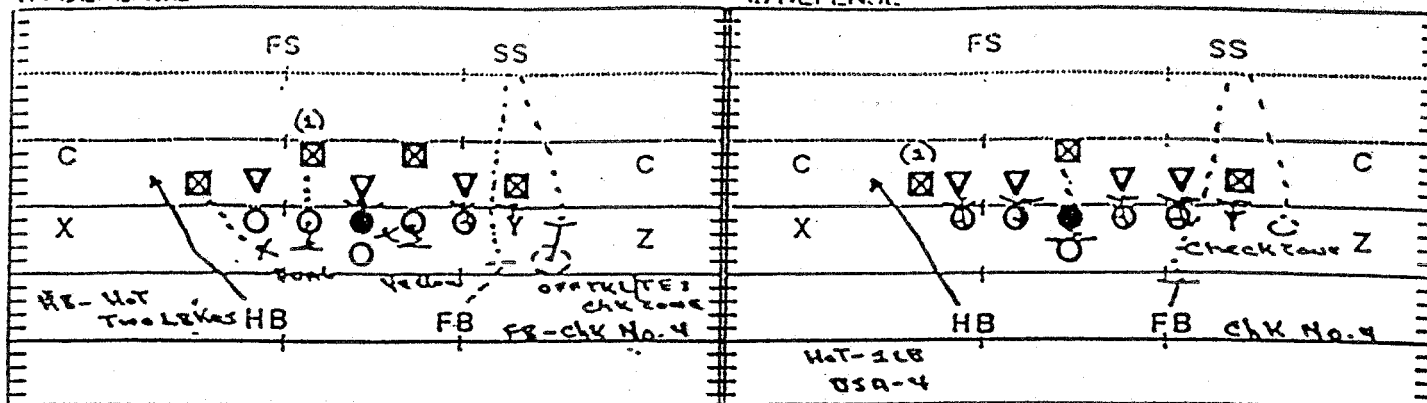 FS SS
(1)
C C
X Y Z
HB - HOT
Two LBKers HB
DUAL Yellow
OFFTKL/TE 3
Chk Zone
FB FB-Chk No. 4
FS SS
(1)
C C
X Y Z
Check Zone
HB FB Chk No. 4
HOT-1LB